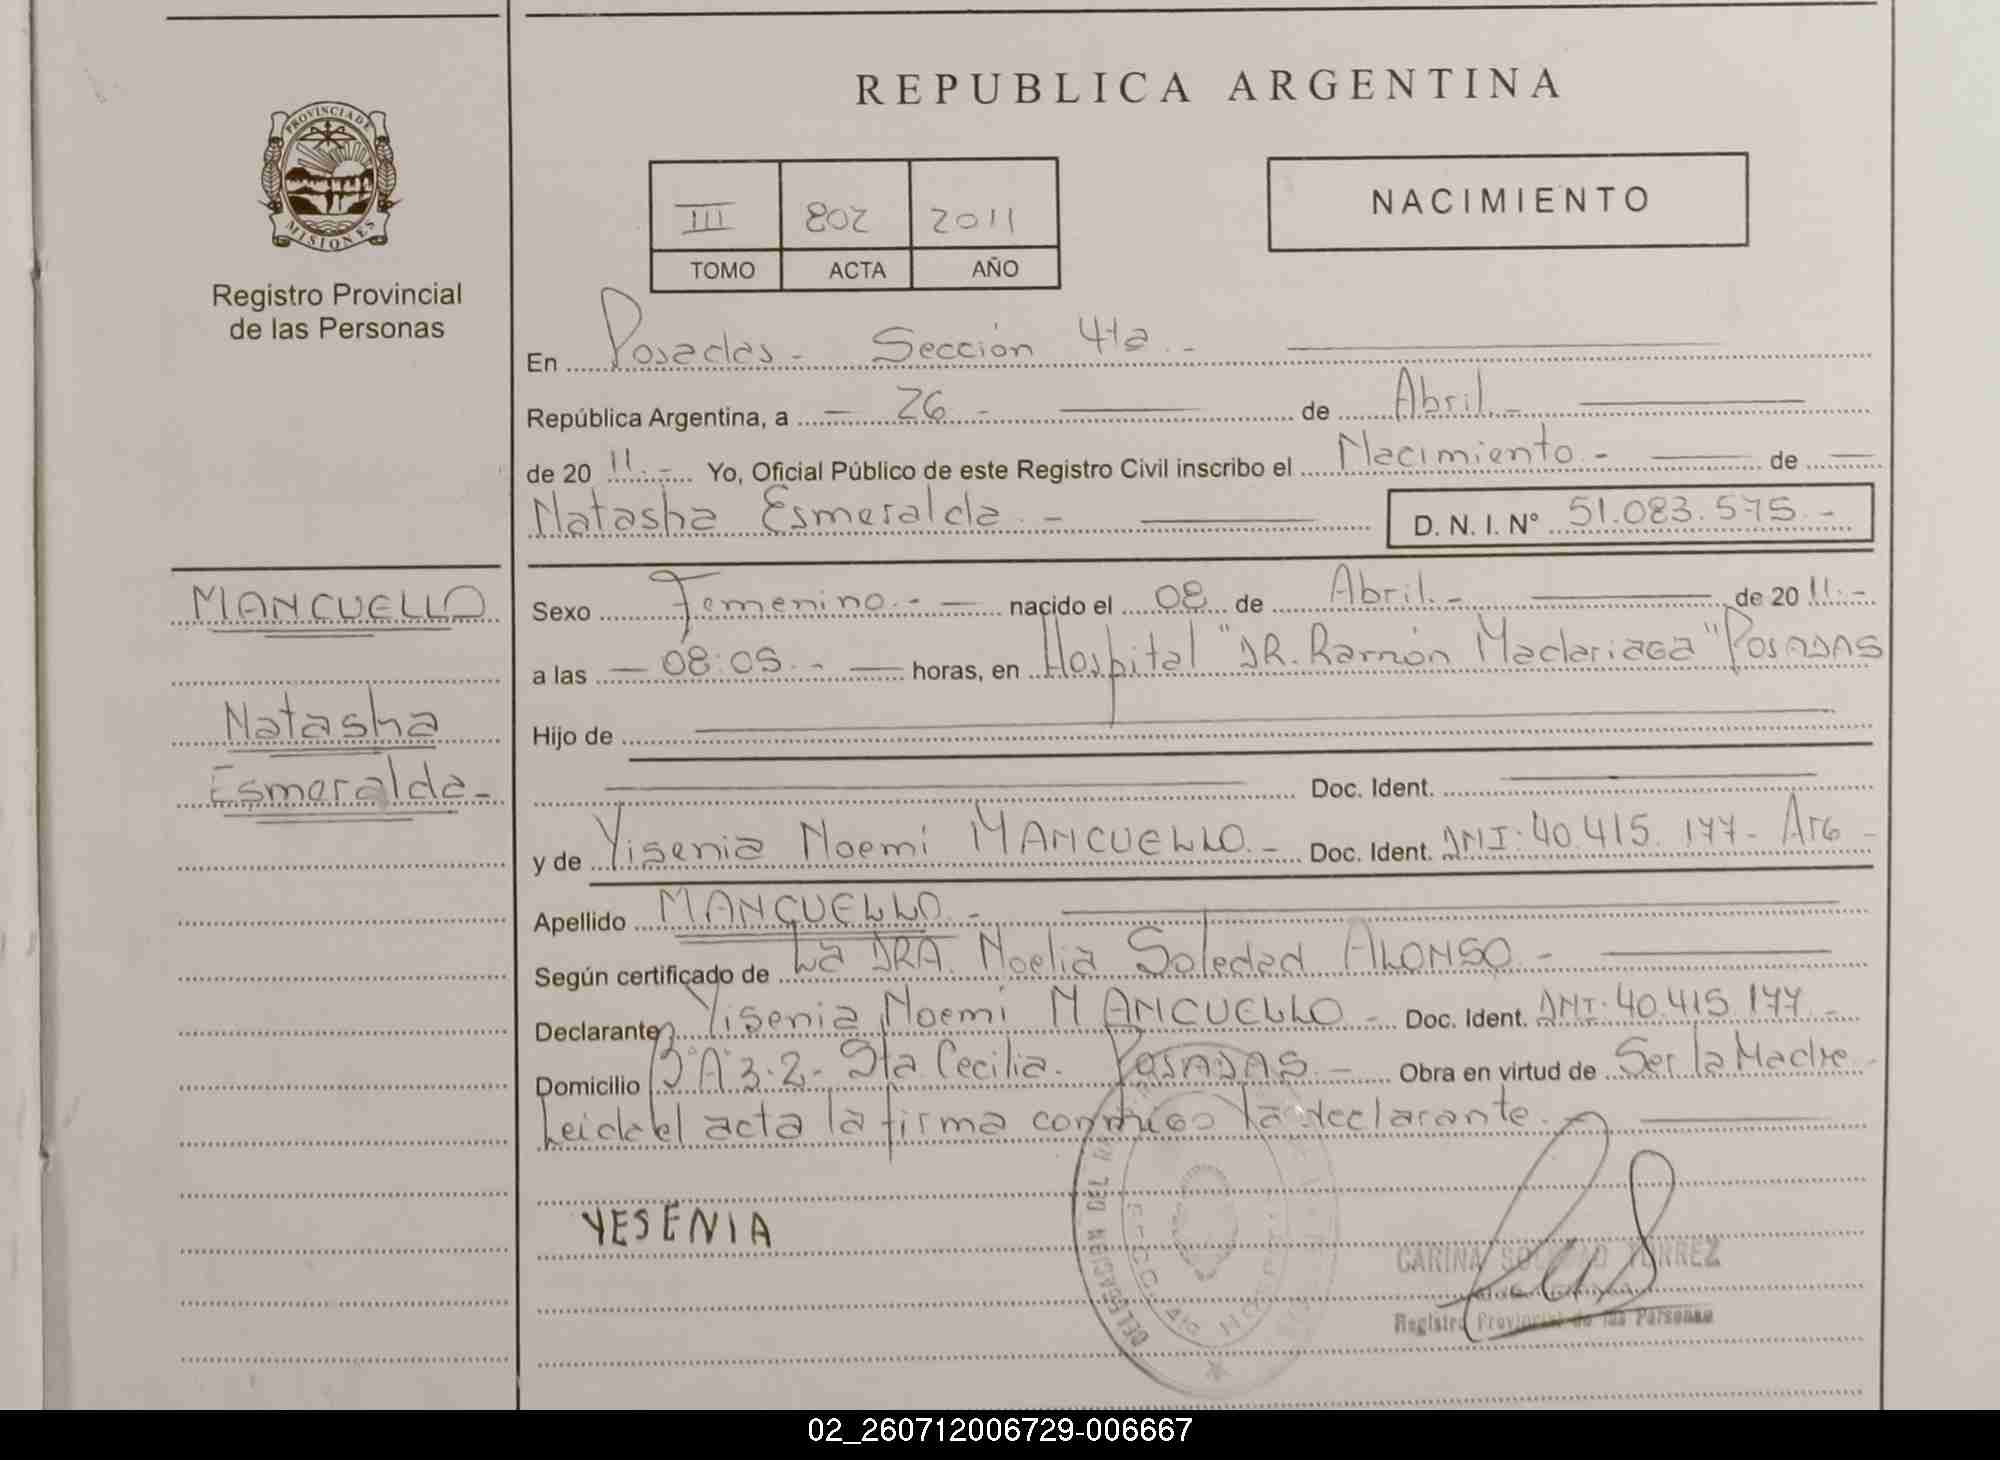 REPUBLICA ARGENTINA
PROVINCIA DE MISIONES
Registro Provincial
de las Personas
NACIMIENTO
III 802 2011
TOMO ACTA AÑO
En Posadas - Sección 4ta. -
República Argentina, a - 26 - de Abril. -
de 20 11. - Yo, Oficial Público de este Registro Civil inscribo el Nacimiento. - de -
Natasha Esmeralda. - D. N. I. Nº 51.083.575. -
MANCUELLO
Natasha
Esmeralda -
Sexo Femenino. - - nacido el 08 de Abril. - de 20 11. -
a las - 08:05. - - horas, en Hospital "DR. Ramón Madariaga" POSADAS
Hijo de
Doc. Ident.
y de Yisenia Noemí MANCUELLO. - Doc. Ident. DNI. 40.415.177 - Arg -
Apellido MANCUELLO. -
Según certificado de La DRA. Noelia Soledad ALONSO. -
Declarante Yisenia Noemí MANCUELLO - Doc. Ident. DNI. 40.415.177. -
Domicilio Bº A 3-2- Sta. Cecilia. POSADAS. - Obra en virtud de Ser la Madre -
Leida el acta la firma conmigo la declarante. -
YESENIA
DELEGACION DEL
CARINA TORREZ
Registro Provincial de las Personas
02_260712006729-006667